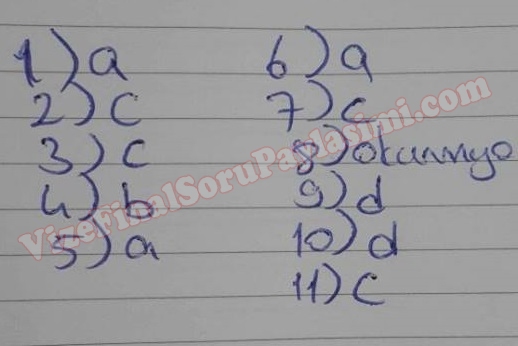 1) a
2) c
3) c
4) b
5) a
6) a
7) c
8) okunmuyo
9) d
10) d
11) c
VizeFinalSoruPaylasimi.com